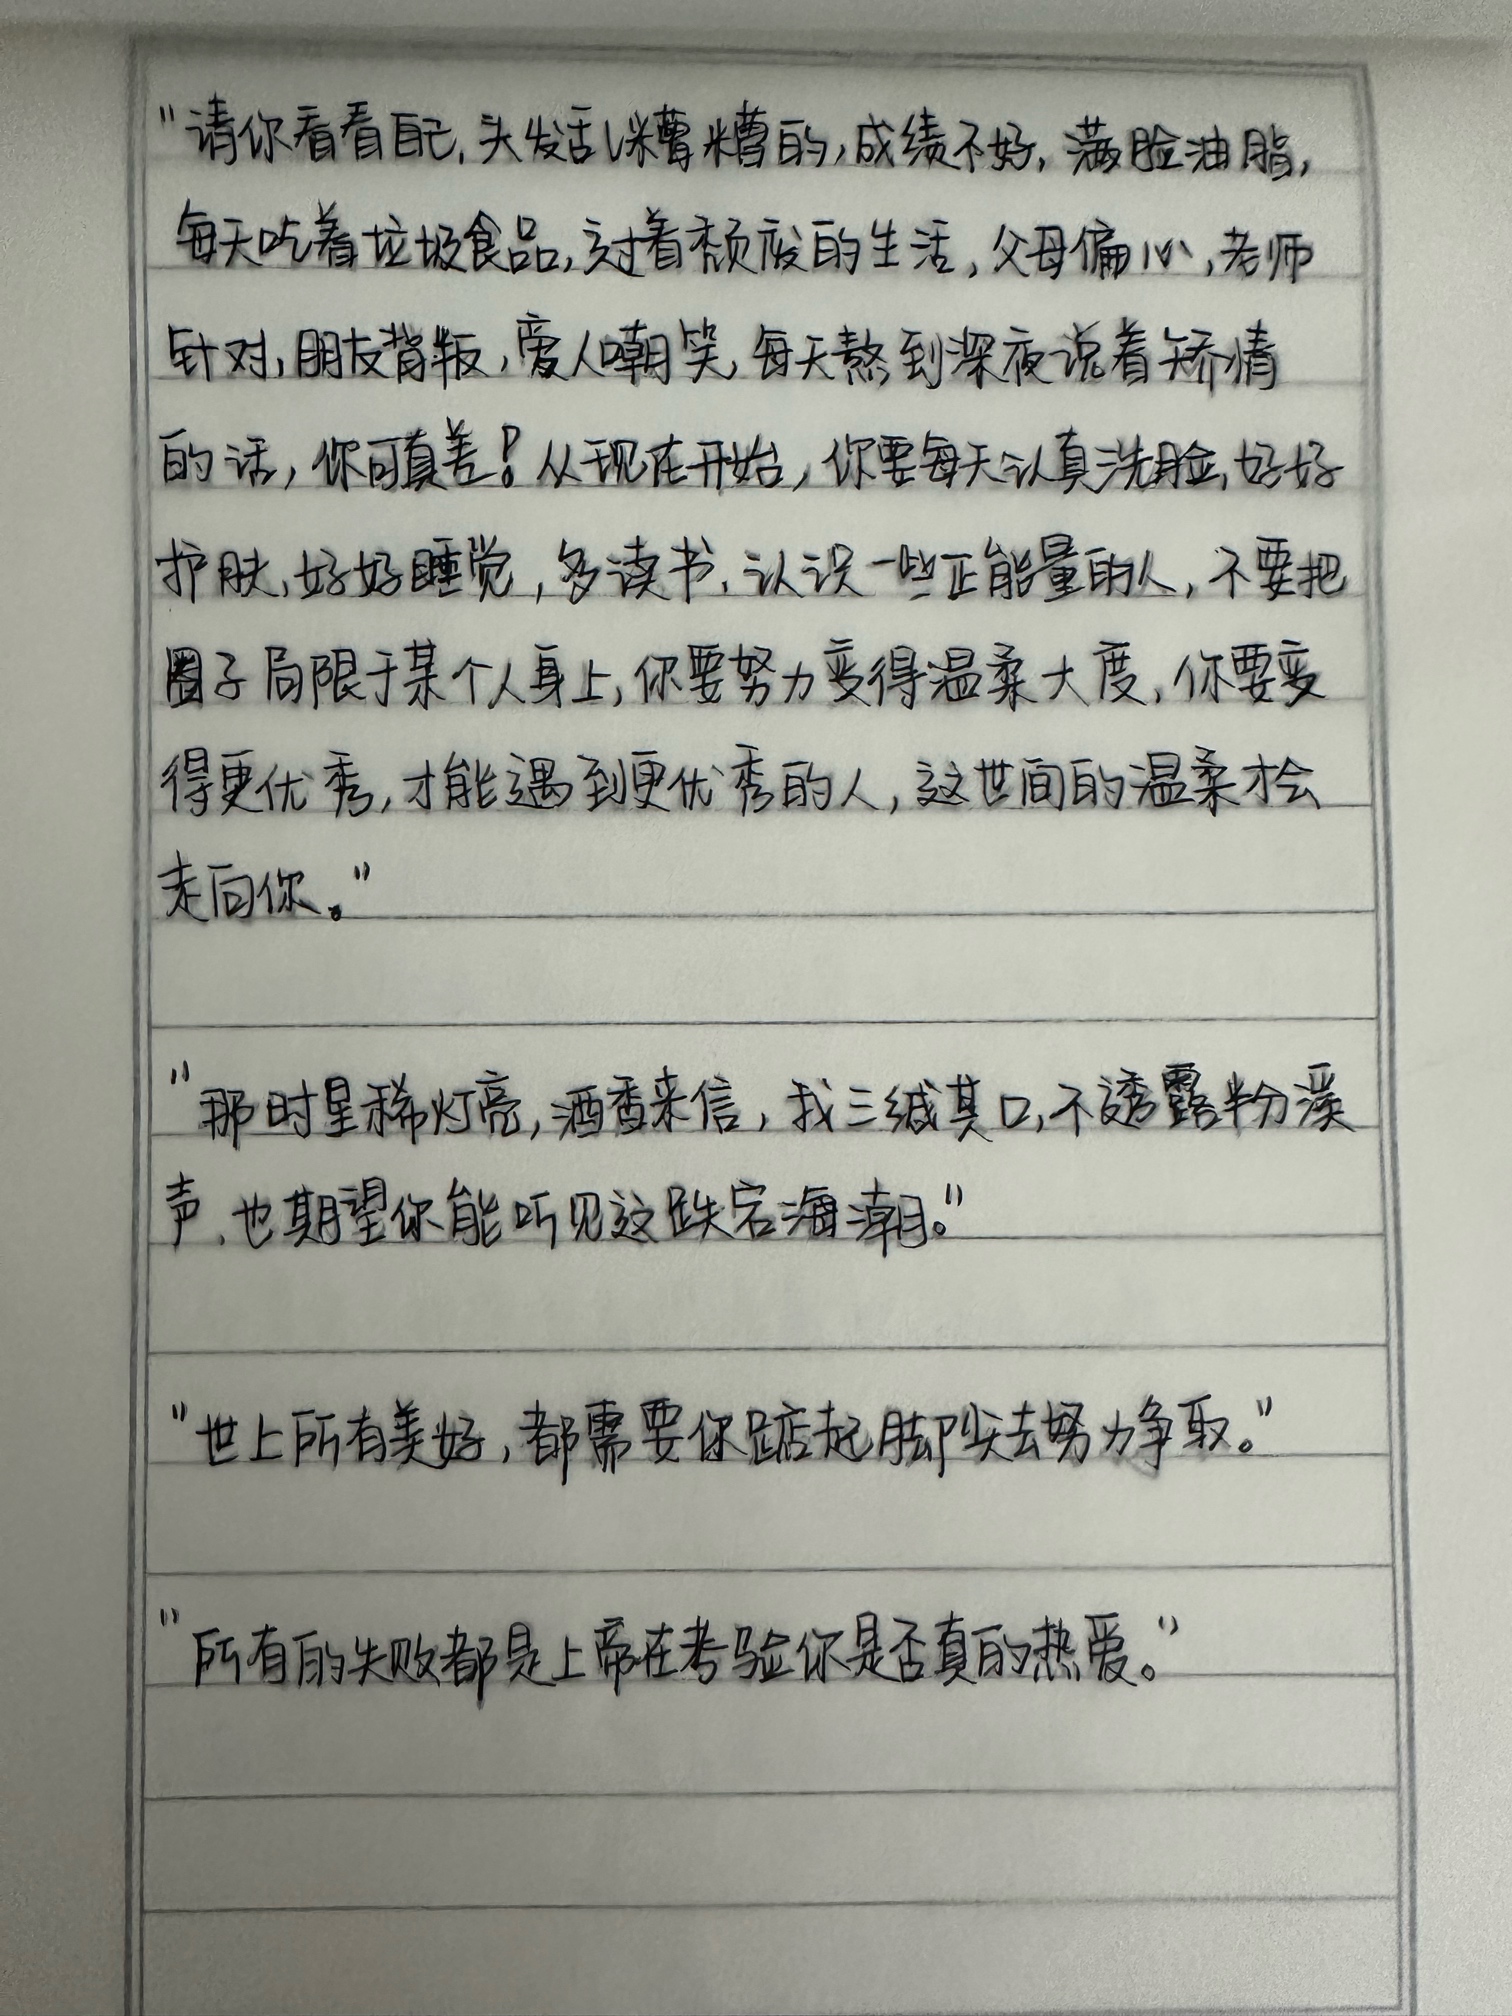 "请你看看自己,头发乱糟糟的,成绩不好,满脸油脂,
每天吃着垃圾食品,过着颓废的生活,父母偏心,老师
针对,朋友背叛,爱人嘲笑,每天熬到深夜说着矫情
的话,你可真差!从现在开始,你要每天认真洗脸,好好
护肤,好好睡觉,多读书,认识一些正能量的人,不要把
圈子局限于某个人身上,你要努力变得温柔大度,你要变
得更优秀,才能遇到更优秀的人,这世间的温柔才会
走向你。"
"那时星稀灯亮,酒香来信,我三缄其口,不透露粉溪
声,也期望你能听见这跌宕海潮。"
"世上所有美好,都需要你踮起脚尖去努力争取。"
"所有的失败都是上帝在考验你是否真的热爱。"